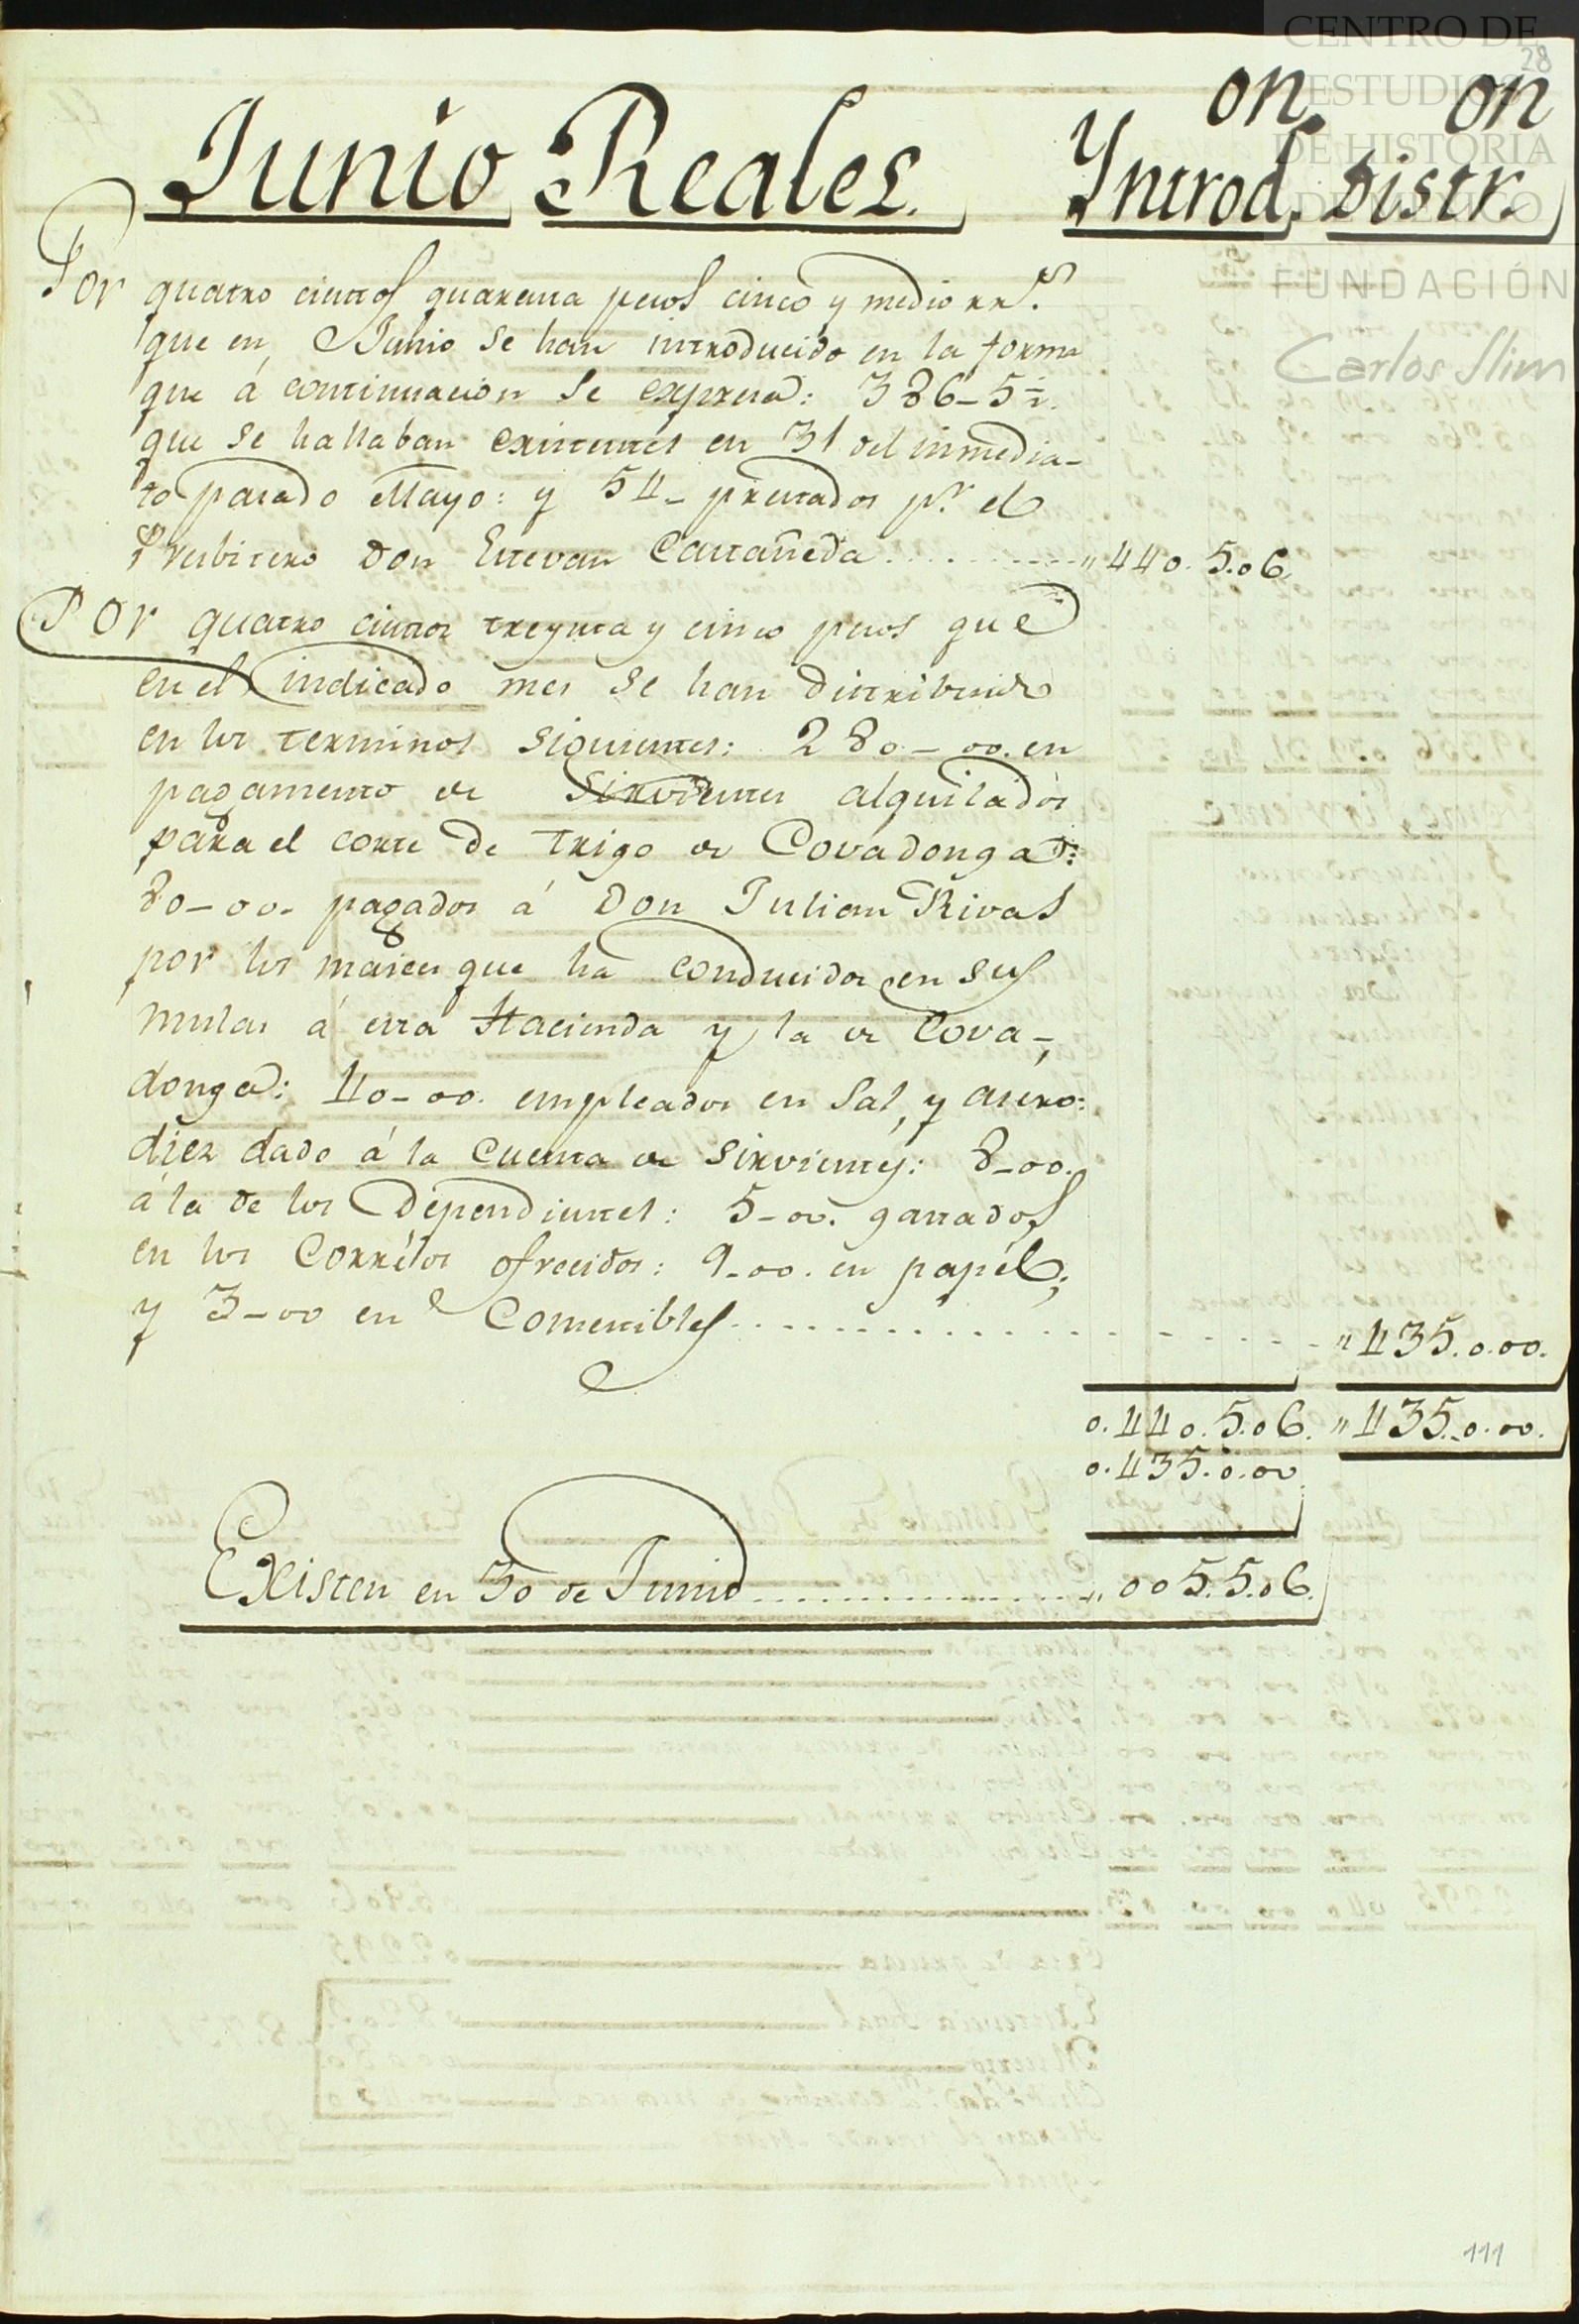 CENTRO DE
ESTUDIOS
DE HISTORIA
DE MÉXICO
FUNDACIÓN
Carlos Slim
28
Junio Reales. Introd.on Distr.on
Por quatro cientos quarenta pesos cinco y medio rr.s
que en Junio se han introducido en la forma
que á continuacion se expresa: 386-5½.
que se hallaban existentes en 31 del inmedia-
to pasado Mayo: y 54- prestados p.r el
Presbitero Don Estevan Castañeda.......... " 440.5.06.
Por quatro cientos treynta y cinco pesos que
en el indicado mes se han distribuido
en los terminos siguientes: 280-00. en
pagamento de Sirvientes alquilados
para el corte de trigo de Covadonga:
80-00- pagados á Don Julian Rivas
por los maises que ha conducido en sus
mulas á esta Hacienda y la de Cova-
donga: 40-00. empleados en Sal, y
diez dado á la Cuenta de Sirvientes: 8-00.
á la de los Dependientes: 5-00. gastados
en los Corréos ofrecidos: 9-00. en papél;
y 3-00 en Comestibles.......... " 435.0.00.
0.440.5.06. " 435.0.00.
0.435.0.00.
Existen en 30 de Junio.......... " 005.5.06.
111